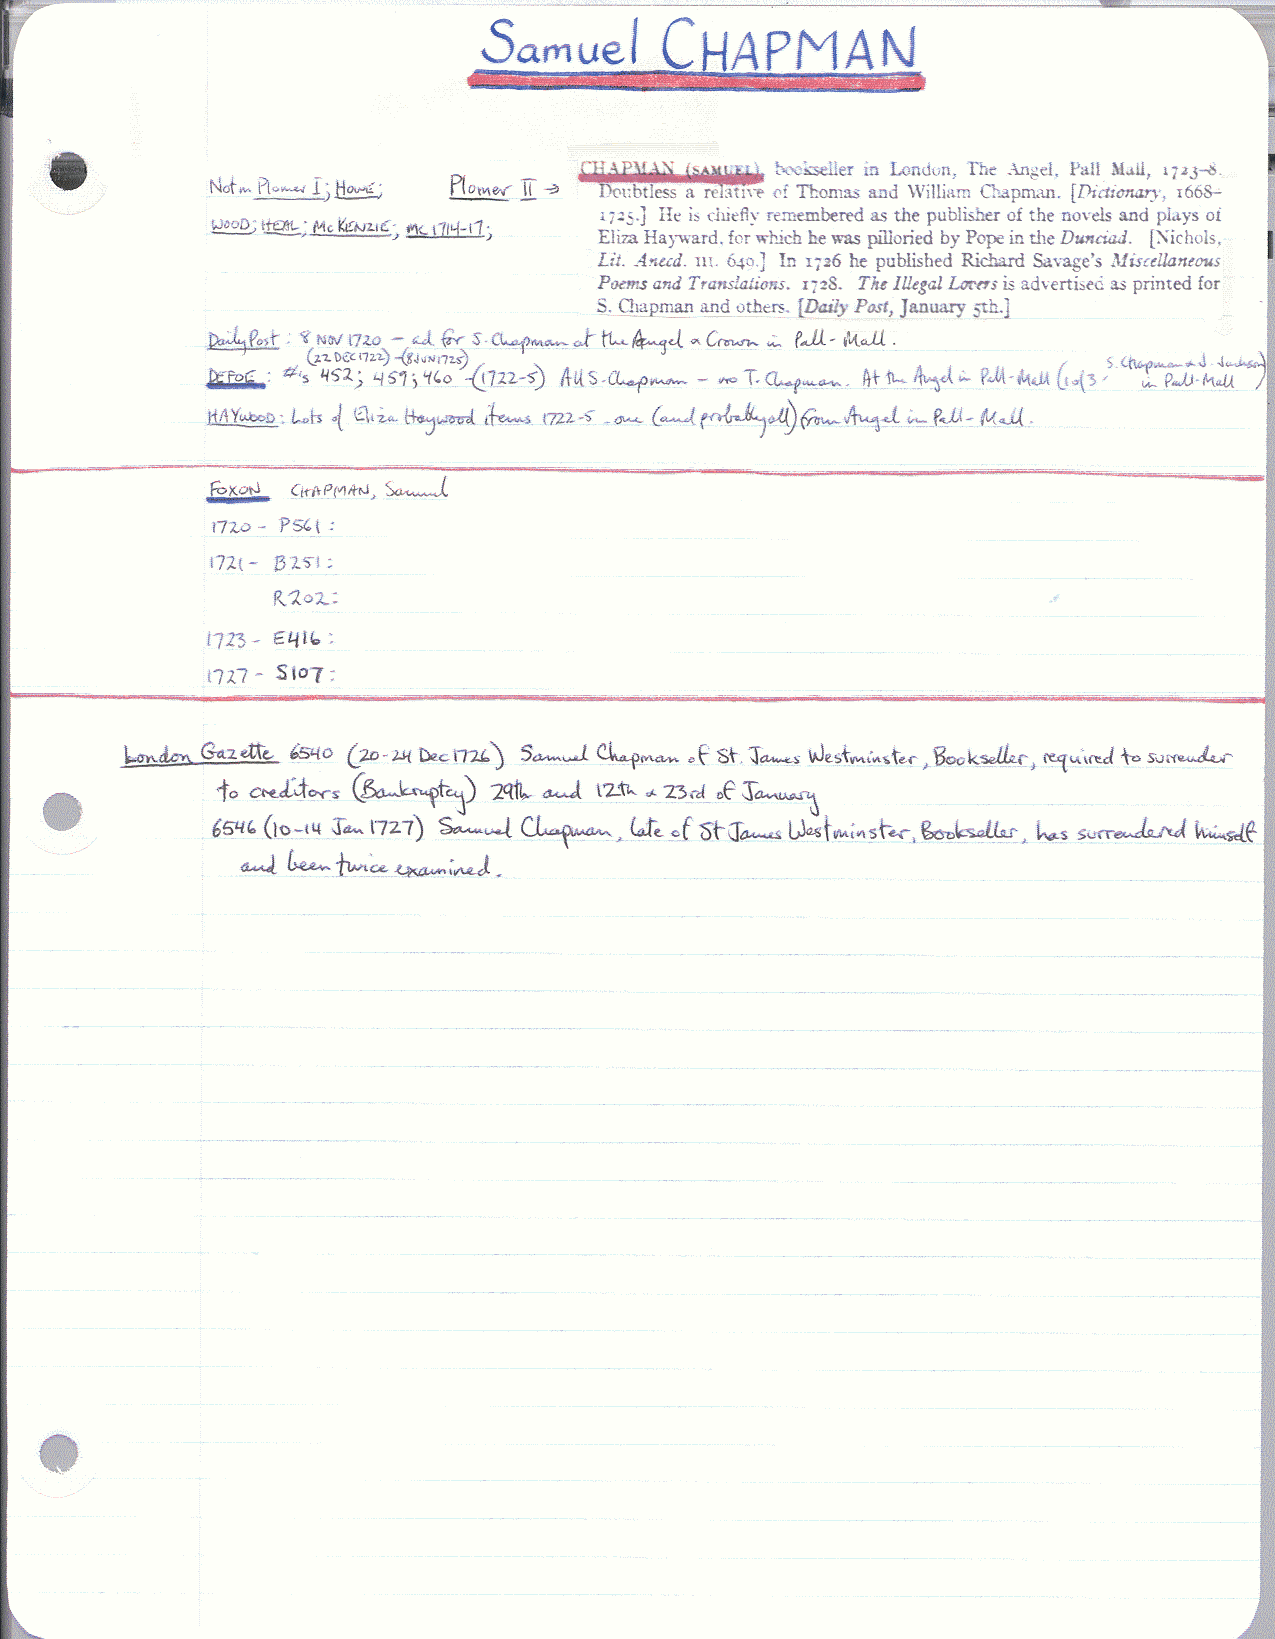 Samuel CHAPMAN
Not in Plomer I; Howe; Plomer II →
WOOD; HEAL; McKENZIE; MC 1714-17;
CHAPMAN (SAMUEL), bookseller in London, The Angel, Pall Mall, 1723–8.
Doubtless a relative of Thomas and William Chapman. [Dictionary, 1668–
1725.] He is chiefly remembered as the publisher of the novels and plays of
Eliza Hayward, for which he was pilloried by Pope in the Dunciad. [Nichols,
Lit. Anecd. III. 640.] In 1726 he published Richard Savage's Miscellaneous
Poems and Translations. 1728. The Illegal Lovers is advertised as printed for
S. Chapman and others. [Daily Post, January 5th.]
Daily Post: 8 NOV 1720 – ad for S. Chapman at the Angel & Crown in Pall-Mall.
(22 DEC 1722) – (8 JUN 1725)
DEFOE: #'s 452; 459; 460 – (1722-5) All S. Chapman – no T. Chapman. At the Angel in Pall-Mall (1 of 3 - S. Chapman & J. Jackson in Pall-Mall)
HAYWOOD: Lots of Eliza Haywood items 1722-5 - one (and probably all) from Angel in Pall-Mall.
FOXON CHAPMAN, Samuel
1720 - P561:
1721 - B251:
R202:
1723 - E416:
1727 - S107:
London Gazette 6540 (20-24 Dec 1726) Samuel Chapman of St. James Westminster, Bookseller, required to surrender
to creditors (Bankruptcy) 29th and 12th & 23rd of January
6546 (10-14 Jan 1727) Samuel Chapman, late of St James Westminster, Bookseller, has surrendered himself
and been twice examined.